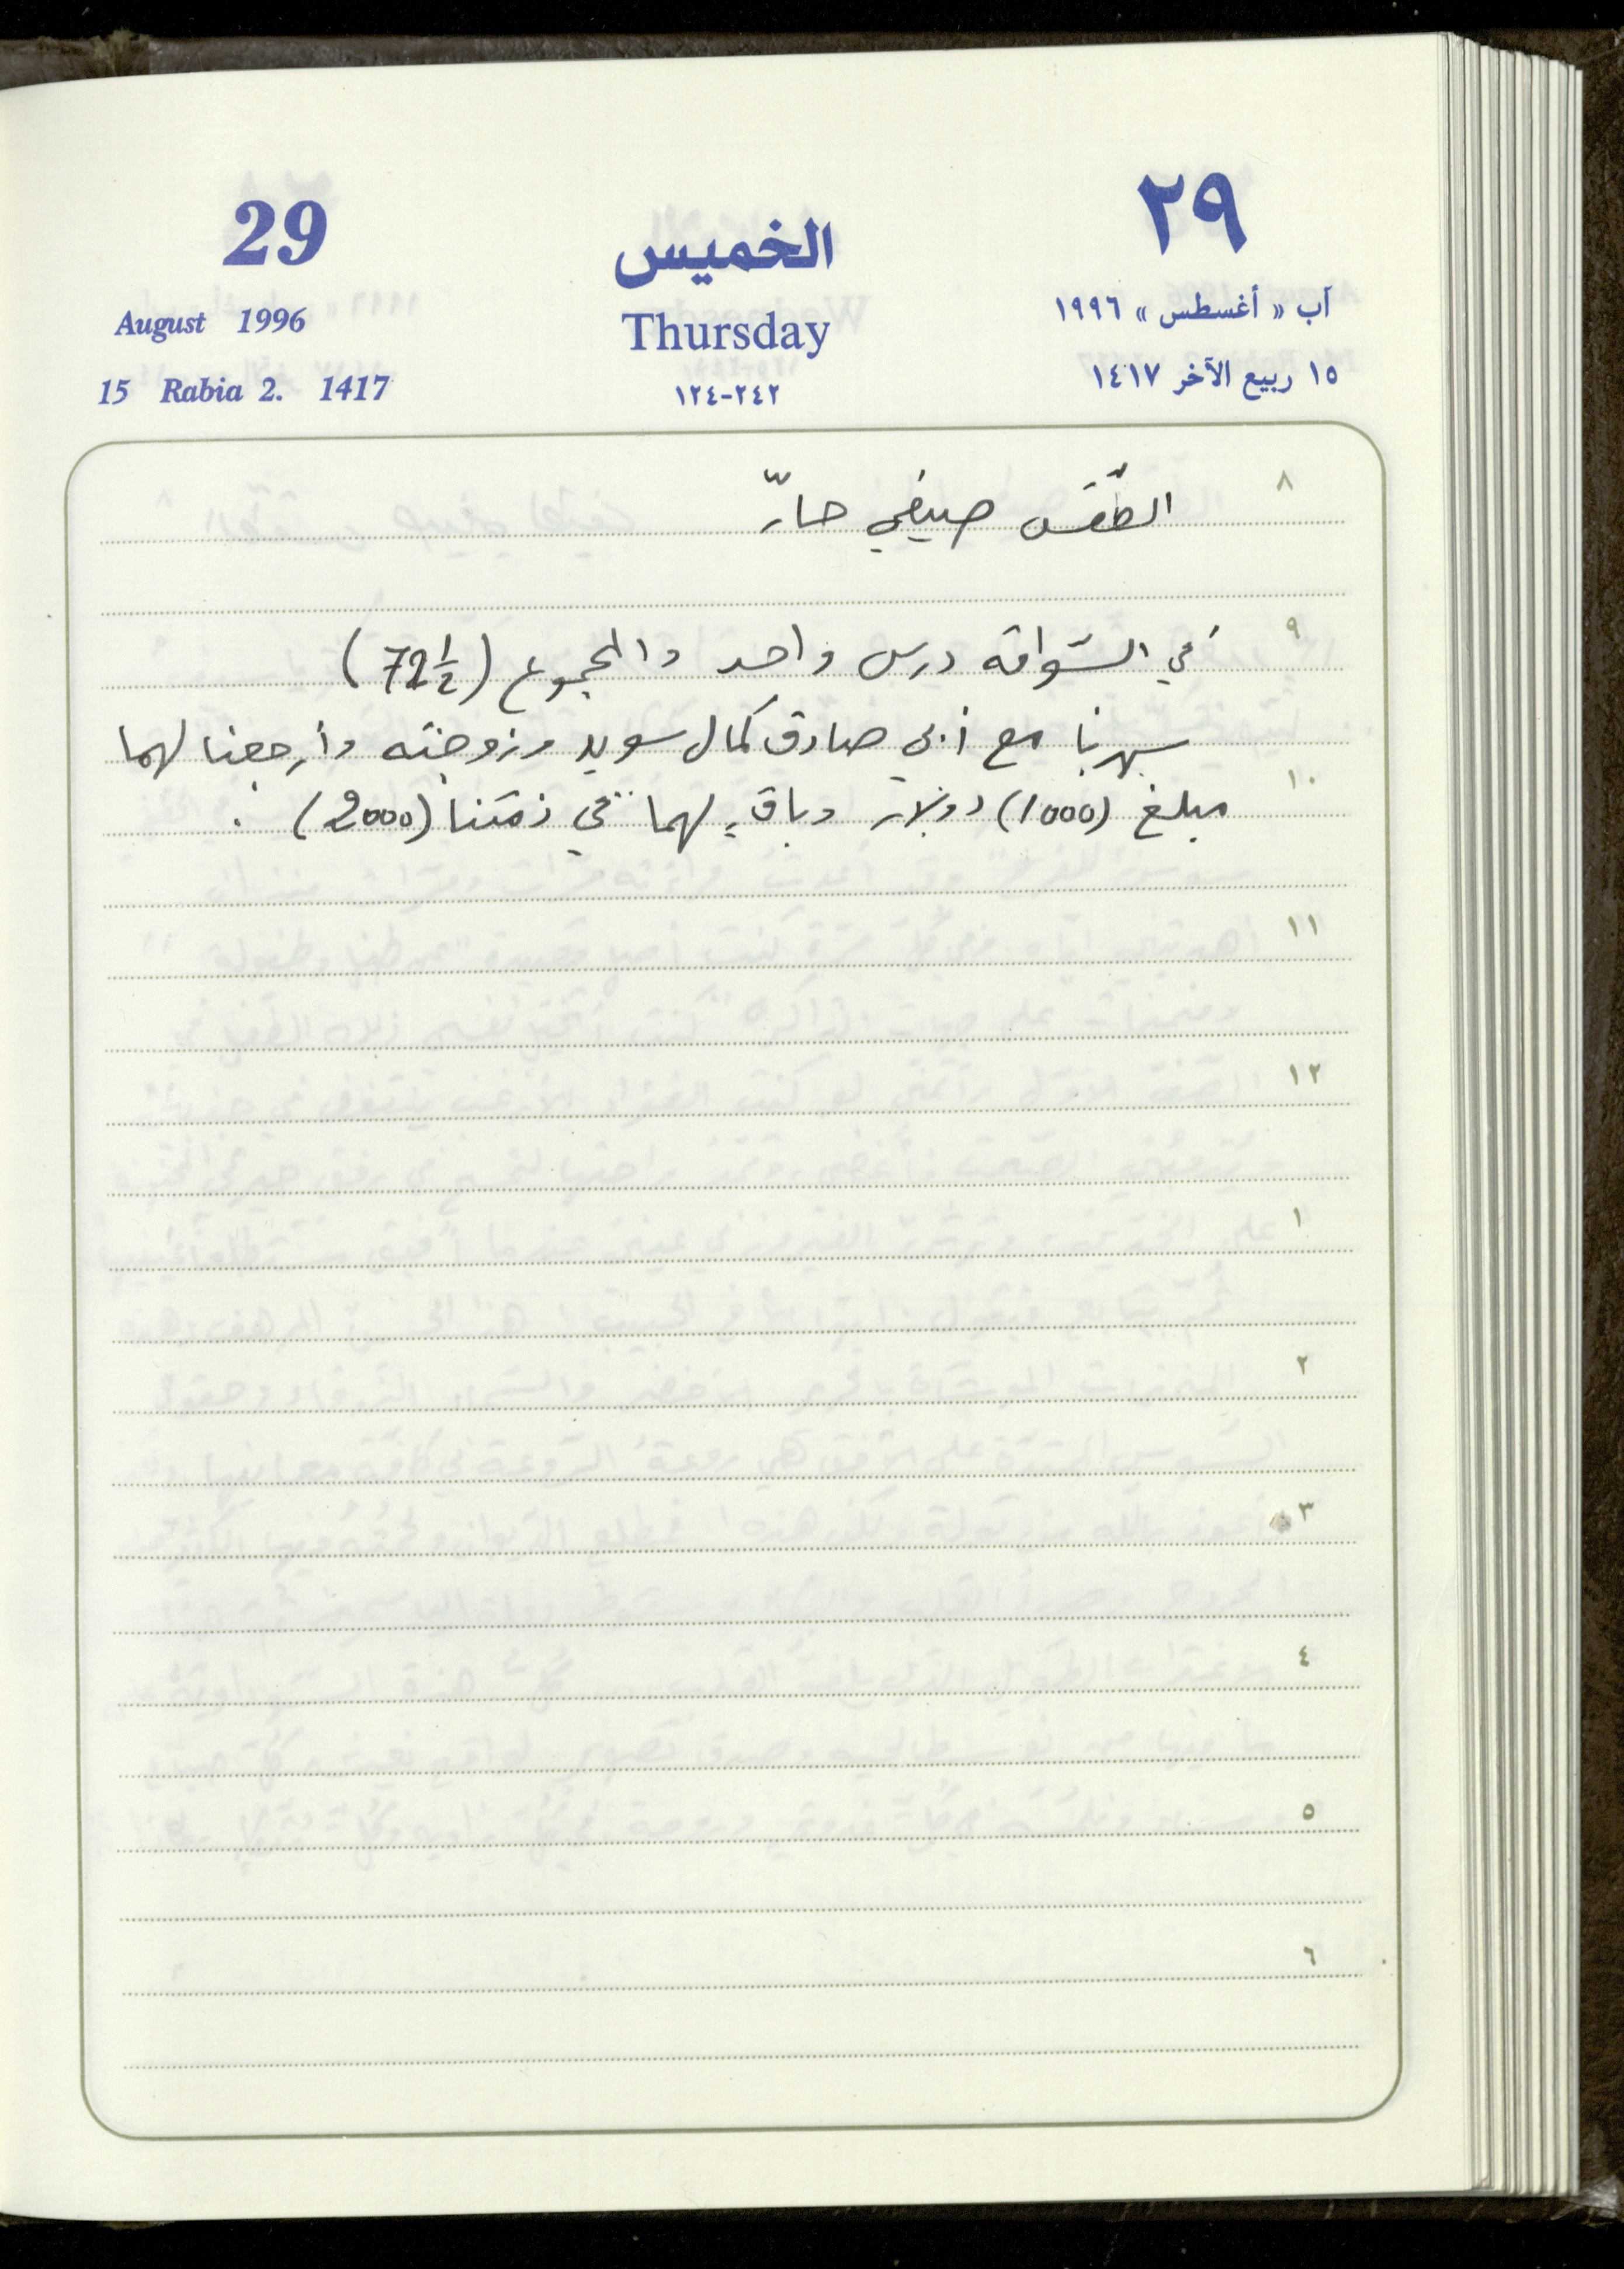 29 الخميس ٢٩
August 1996 Thursday آب « أغسطس » ١٩٩٦
15 Rabia 2. 1417 ٢٤٢-١٢٤ ١٥ ربيع الآخر ١٤١٧
٨ الطّقس صيفي حارّ
٩ في السّواقه درس واحد والمجموع (72½)
سهرنا مع أبي صادق كمال سويد وزوجته وأرجعنا لهما
١٠ مبلغ (1000) دولار وباقٍ لهما في ذمّتنا (2000).
١١
١٢
١
٢
٣
٤
٥
٦